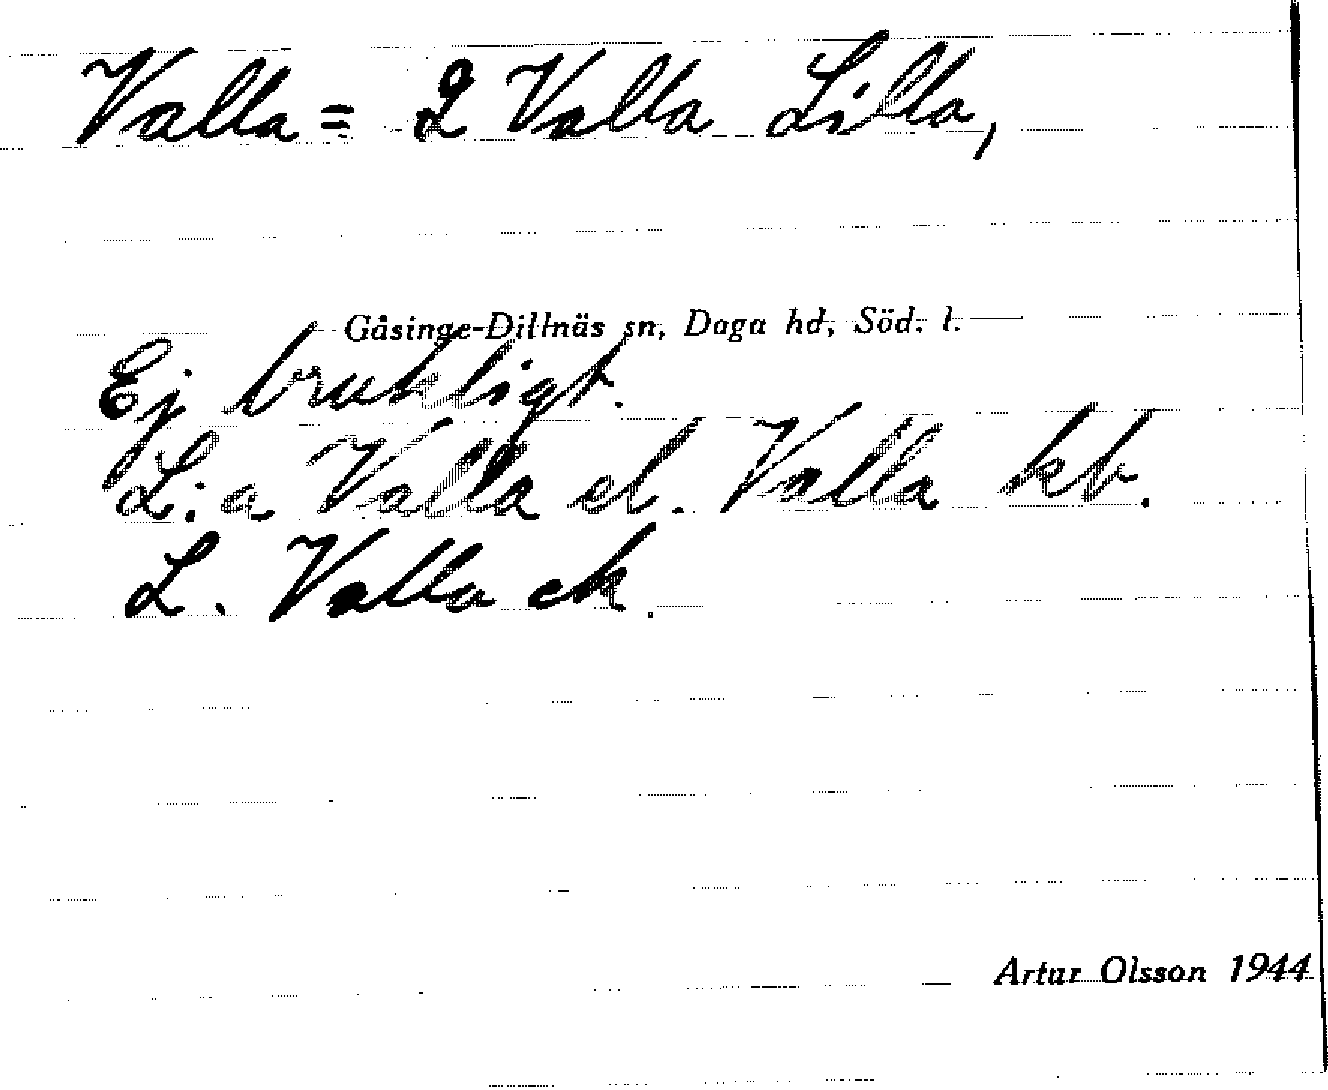 Valla = 2 Valla Lilla,
Gåsinge-Dillnäs sn, Daga hd, Söd. l.
Ej brukligt.
L:a Valla el. Valla kt.
L. Valla ek.
Artur Olsson 1944